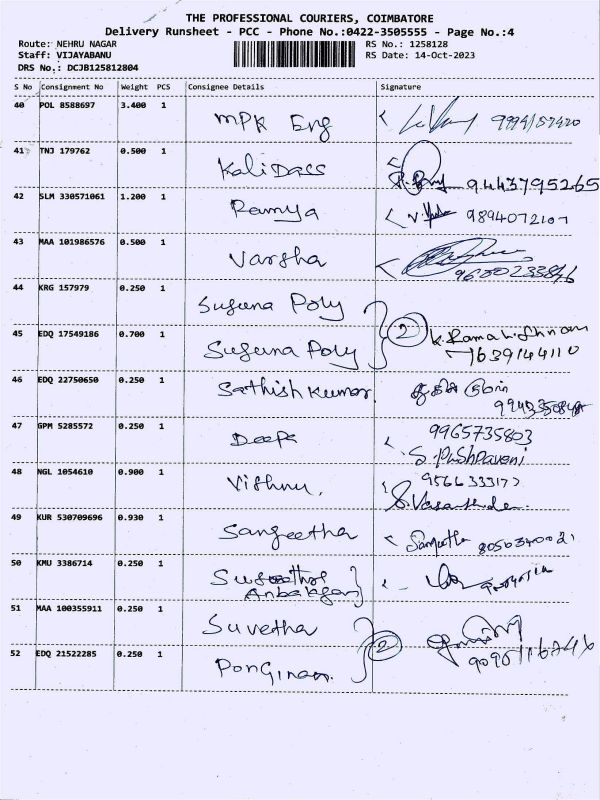 THE PROFESSIONAL COURIERS, COIMBATORE
Delivery Runsheet - PCC - Phone No.:0422-3505555 - Page No.:4
Route: NEHRU NAGAR RS No.: 1258128
Staff: VIJAYABANU RS Date: 14-Oct-2023
DRS No.: DCJB125812804
S No Consignment No Weight PCS Consignee Details Signature
40 POL 8588697 3.400 1 MPK Eng
41 TNJ 179762 0.500 1 Kalidass 9443795265
42 SLM 330571061 1.200 1 Ramya 9894072107
43 MAA 101986576 0.500 1 Varsha
44 KRG 157979 0.250 1 Suguna Poly
2 K. Ramakrishnan
45 EDQ 17549186 0.700 1 Suguna Poly 1639144110
46 EDQ 22750650 0.250 1 Sathish Kumar
47 GPM 5285572 0.250 1 Deepa 9965735803
S. Pushpaveni
48 NGL 1054610 0.900 1 Vishnu.
49 KUR 530709696 0.930 1 Sangeetha Sangeetha
50 KMU 3386714 0.250 1
51 MAA 100355911 0.250 1 Suvetha
2
52 EDQ 21522285 0.250 1